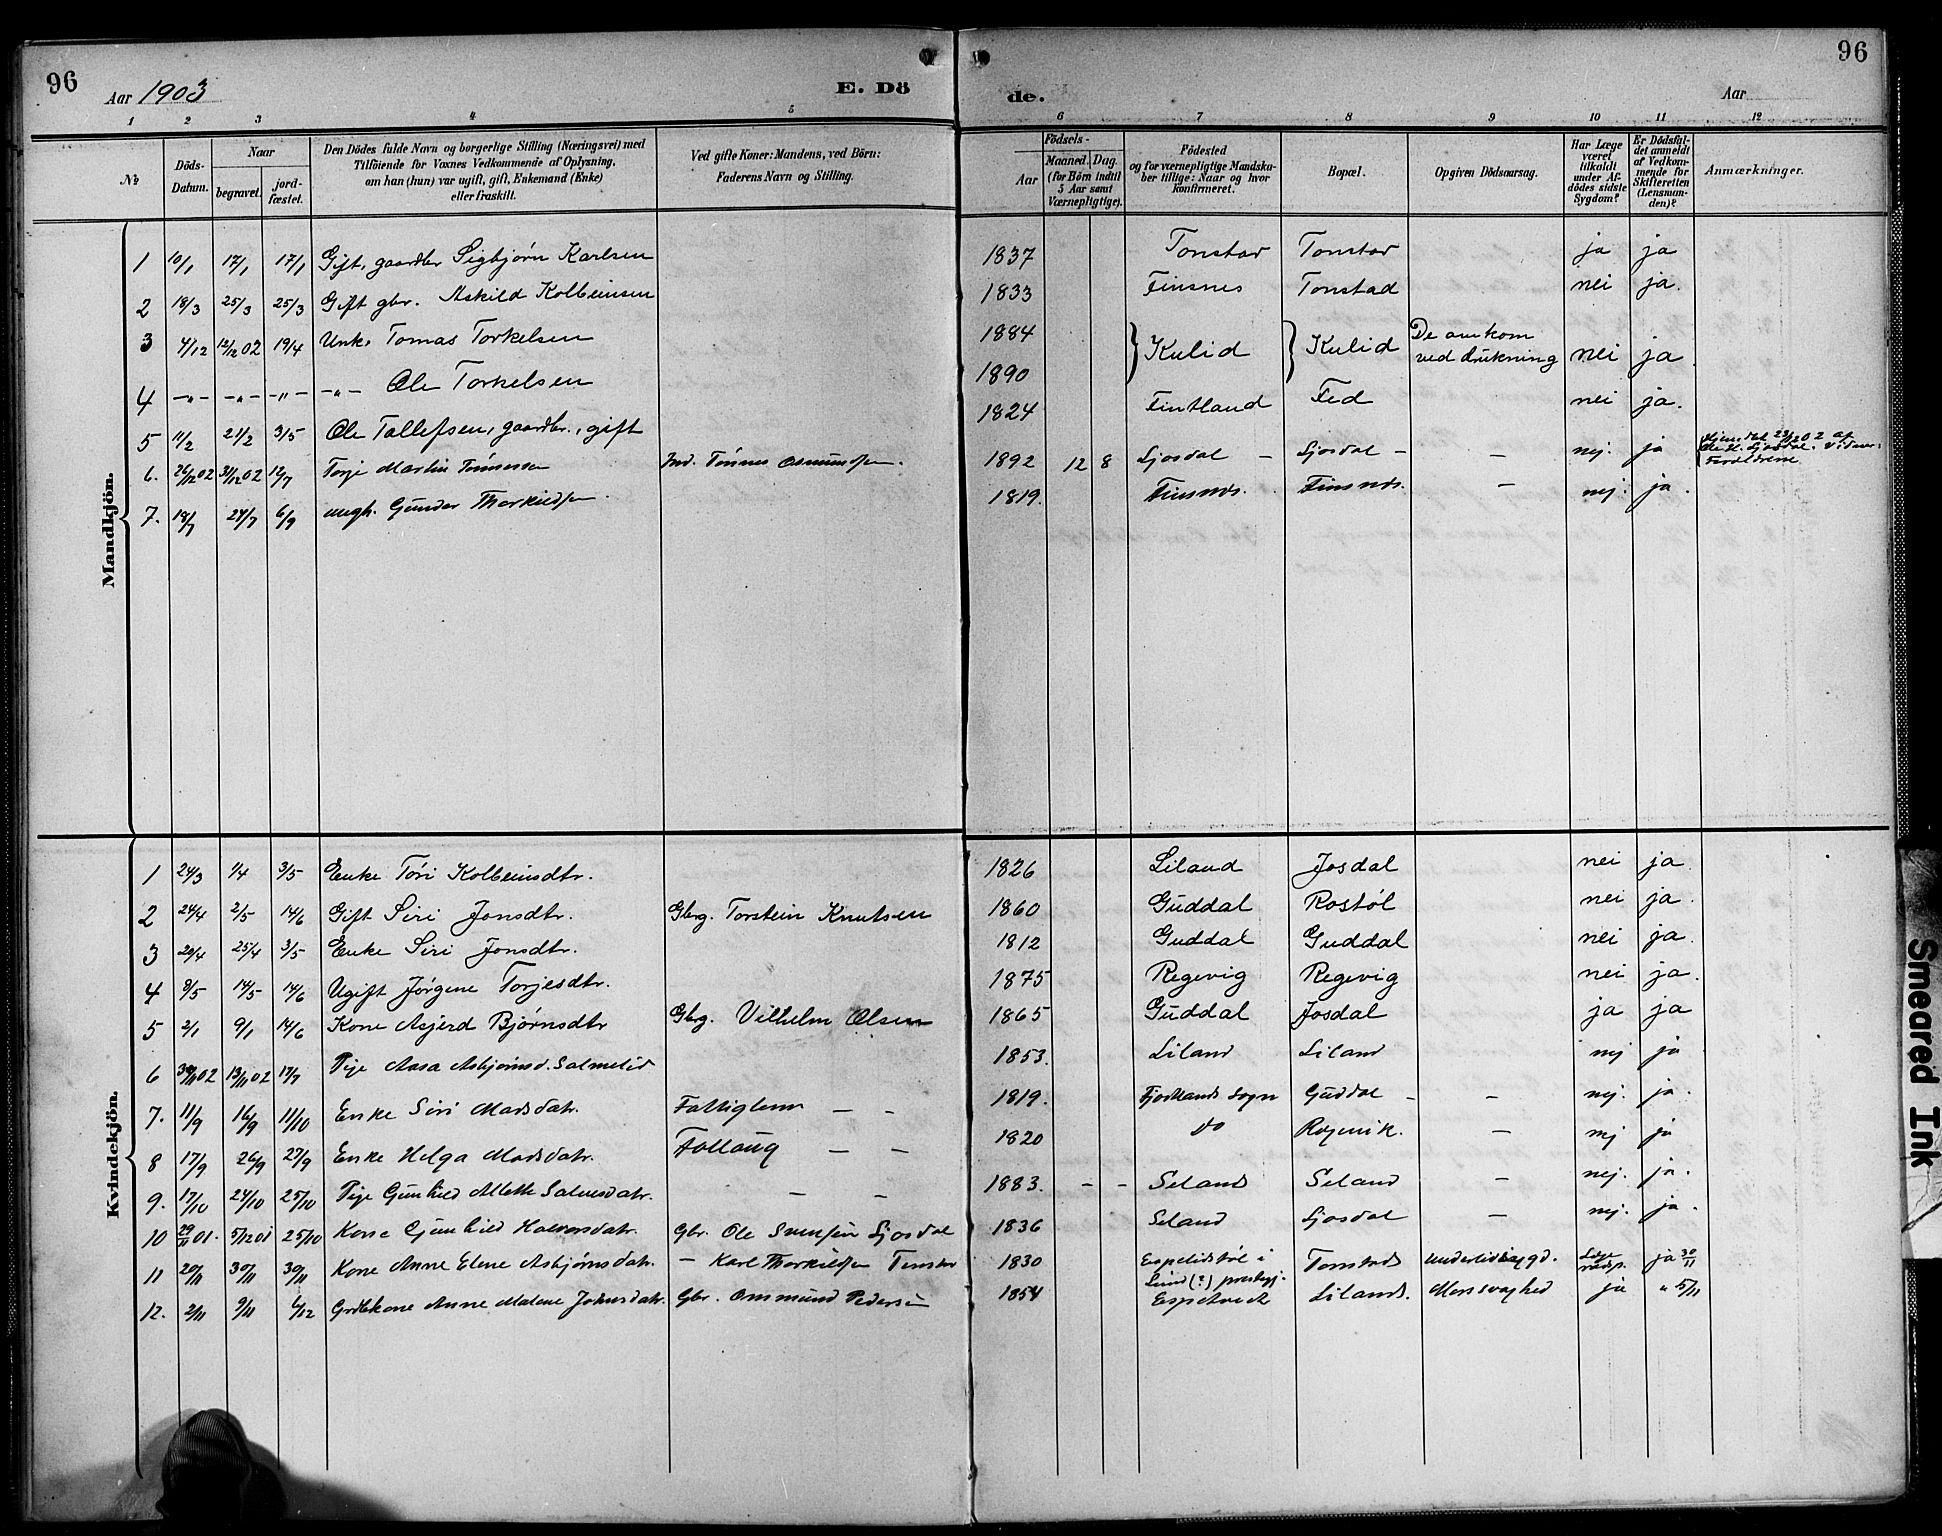 96
Aar 1903
E. Dö
de.
Aar
96
1 2 3 4 5 6 7 8 9 10 11 12
№
Döds-Datum.
Naar
begravet.
jord-fæstet.
Den Dödes fulde Navn og borgerlige Stilling (Næringsvei) med
Tilföiende for Voxnes Vedkommende af Oplysning,
om han (hun) var ugift, gift, Enkemand (Enke)
eller fraskilt.
Ved gifte Koner: Mandens, ved Börn:
Faderens Navn og Stilling.
Födsels-
Aar
Maaned. Dag.
(for Börn indtil
5 Aar samt
Værnepligtige).
Födested
og for værnepligtige Mandska-
ber tillige: Naar og hvor
konfirmeret.
Bopæl.
Opgiven Dödsaarsag.
Har Læge
været
tilkaldt
under Af-
dödes sidste
Sygdom?
Er Dödsfal-
det anmeldt
af Vedkom-
mende for
Skifteretten
(Lensman-
den)?
Anmærkninger.
Mandkjön.
1 10/1 17/1 17/1 Gift, gaardbr Sigbjørn Karlsen 1837 Tonstad Tonstad ja ja
2 18/3 25/3 25/3 Gift gbr. Askild Kolbeinsen 1833 Finsnes Tonstad nei ja.
3 4/12 12/12 02 19/4 Unk. Tomas Torkelsen 1884 Kulid Kulid De omkom ved drukning nei ja
4 -"- -"- -"- -"- Ole Torkelsen 1890
5 11/2 21/2 3/5 Ole Tallefsen, gaardbr., gift 1824 Fintland Fed nei ja.
6. 26/12 02 31/12 02 12/7 Torje Martin Tønnessen Ind. Tønnes Osmundsen. 1892 12 8 Ljosdal - Ljosdal - - nej. ja
7. 18/7 24/7 6/9 ungk. Gunder Thorkildsen 1819. Finsnes. Finsnes. - nej. ja.
Kvindekjön.
1 24/3 1/4 3/5 Enke Tøri Kolbeinsdtr. 1826 Liland Josdal nei ja
2 24/4 2/5 14/6 Gift Siri Jonsdtr. Gbrg. Torstein Knutsen 1860 Guddal Rostøl nei ja.
3 20/4 25/4 3/5 Enke Siri Jonsdtr. 1812 Guddal Guddal nei ja.
4 8/5 14/5 14/6 Ugift Jørgene Torjesdtr. 1875 Regevig Regevig nei ja.
5 2/1 9/1 14/6 Kone Asjerd Bjørnsdtr Gbrg. Vilhelm Olsen 1865 Guddal Josdal ja ja
6 13/11 02 17/7 Pije Aasa Asbjørnsd. Salmelid 1853. Liland Liland nej ja
7. 11/9 16/9 11/10 Enke Siri Madsdatr. Fattiglem - - 1819. Fjotlands Sogn Guddal - - nej. ja.
8 17/9 26/9 27/9 Enke Helga Madsdatr. Follaug - - 1820 do Regevik. - nej ja
9. 17/10 24/10 25/10 Pije Gunhild Alette Salvesdatr. - - 1883. - - Seland Seland - nej. ja.
10 29/11 01. 5/12 01 25/10 Kone Gunhild Halvorsdatr. Gbr. Ole Svensen Ljosdal 1836 Seland Ljosdal - nej. ja.
11 20/11 30/11 30/11 Kone Anne Elene Asbjørnsdatr. - Karl Thorkildsen Tonstad 1830 Espelidstøl i Lund (?) prestegj. Tonstad Underlivssygd. ja 30/11
12. 2/11 9/11 6/12 Grdbkone Anne Malene Johnsdatr. Gbr. Ommund Pedersen 1854 Espetveit Liland. Marsvaghed ja " 5/11
Smeared Ink